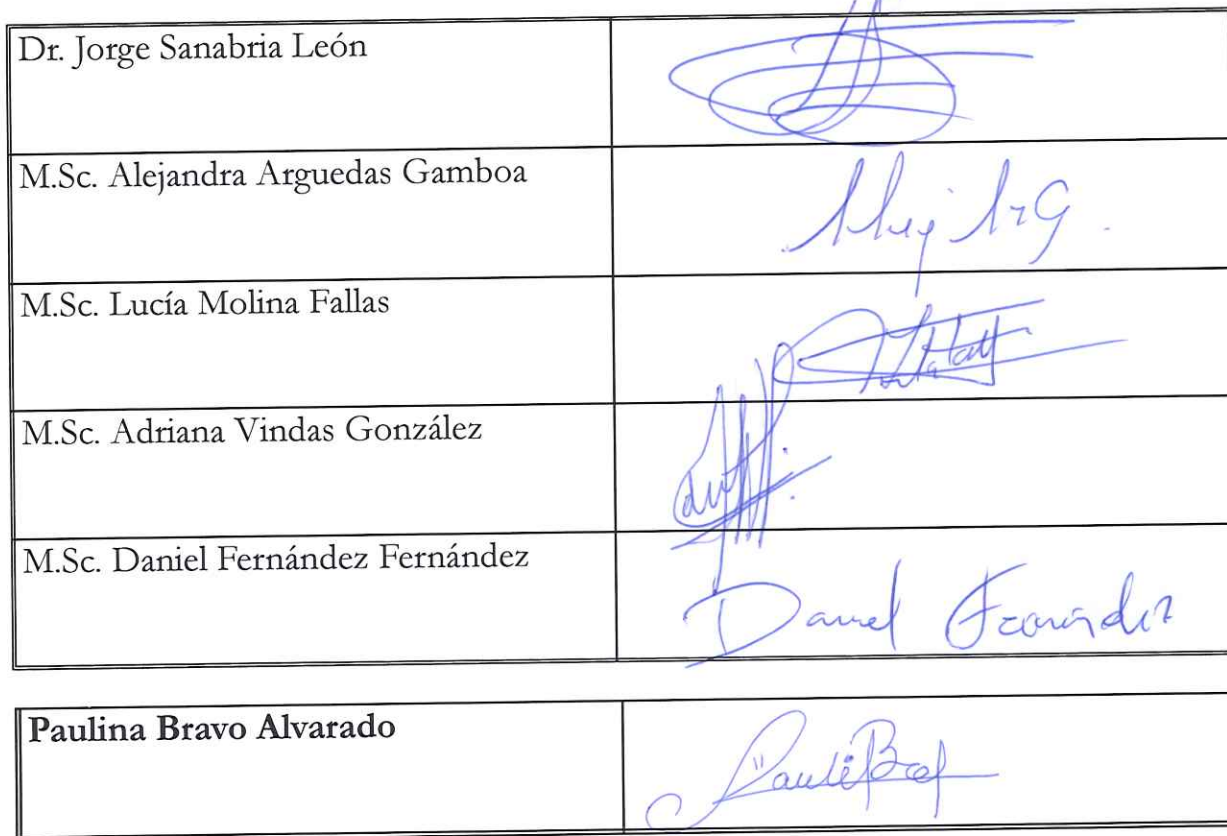 Dr. Jorge Sanabria León
M.Sc. Alejandra Arguedas Gamboa
M.Sc. Lucía Molina Fallas
M.Sc. Adriana Vindas González
M.Sc. Daniel Fernández Fernández
Daniel Fernández
Paulina Bravo Alvarado